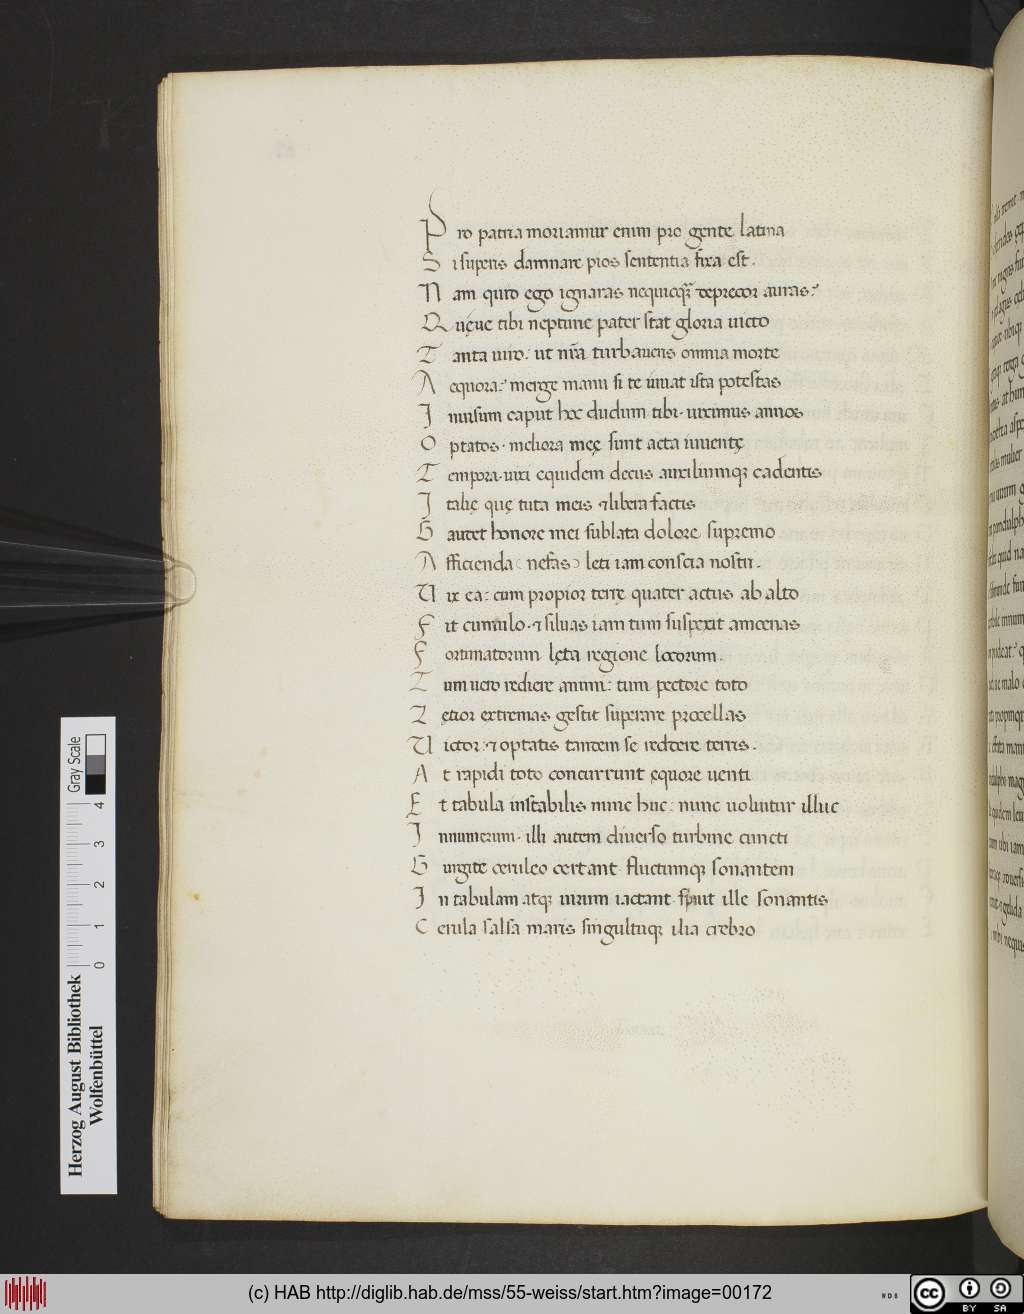 Pro patria moriamur enim pro gente latina
Si superis damnare pios sententia fixa est.
Nam quid ego ignaras nequicq̄ȝ deprecor auras?
Quęue tibi neptune pater stat gloria uicto
Tanta uiro: ut nr̄a turbaueris omnia morte
Aequora: merge manu si te iuuat ista potestas
Inuisum caput hoc dudum tibi. uiximus annos
Optatos. meliora męę sunt acta iuuentę
Tempora. uixi equidem decus auxiliumqȝ cadentis
Italię quę tuta meis ⁊ libera factis
Gaudet honore mei sublata dolore supremo
Afficienda (nefas) leti iam conscia nostri.
Vix ea: cum propior terrę quater actus ab alto
Fit cumulo. ⁊ siluas iam tum suspexit amoenas
Fortunatorum lęta regione locorum.
Tum uero rediere animi: tum pectore toto
Lętior extremas gestit superare procellas
Victor. ⁊ optatis tandem se reddere terris.
At rapidi toto concurrunt ęquore uenti
Et tabula instabilis nunc huc: nunc uoluitur illuc
Innumerum. illi autem diuerso turbine cuncti
Gurgite ceruleo certant. fluctumqȝ sonantem
In tabulam atqȝ uirum iactant. spuit ille sonantis
Cerula salsa maris singultuqȝ ilia crebro
Gray Scale
0 1 2 3 4
Herzog August Bibliothek
Wolfenbüttel
(c) HAB http://diglib.hab.de/mss/55-weiss/start.htm?image=00172
cc BY SA